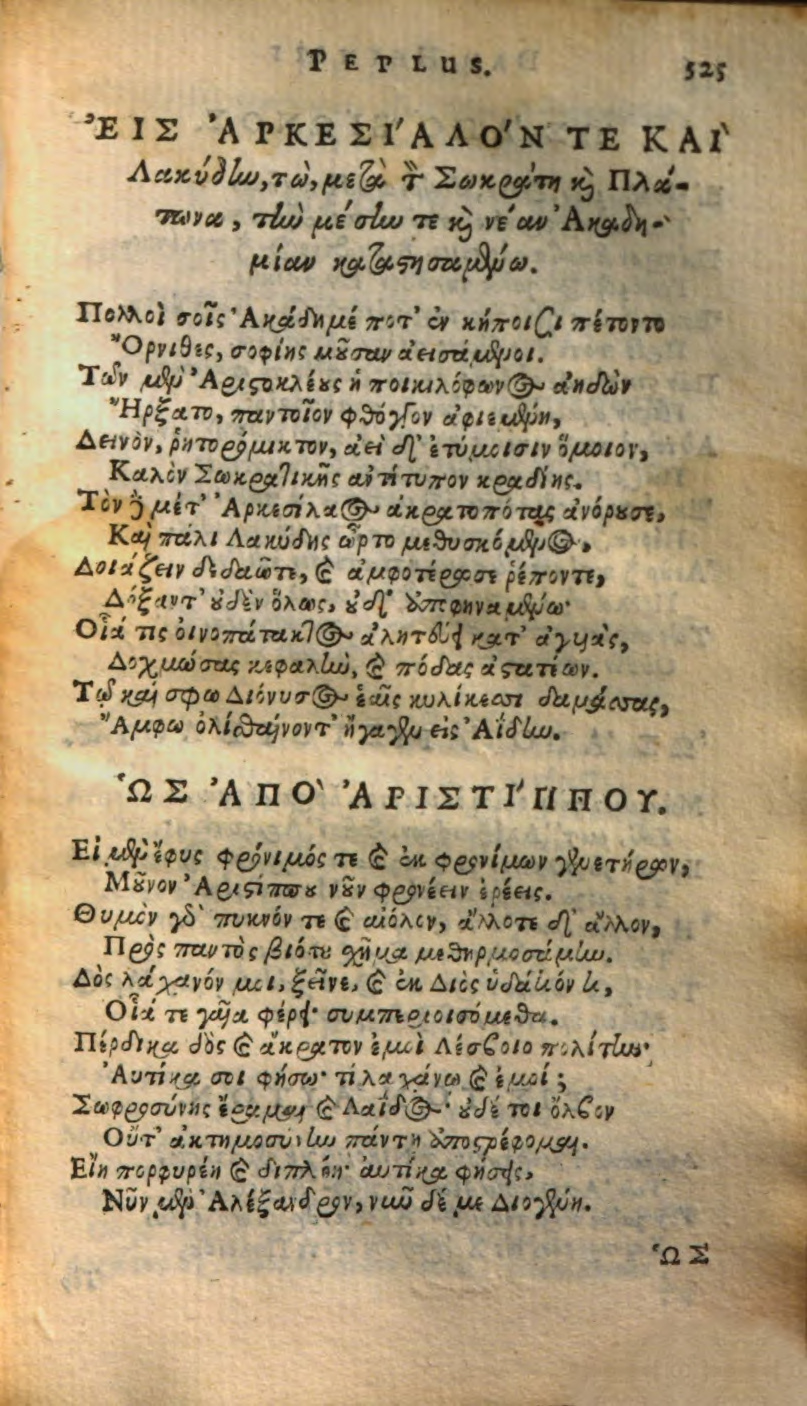 PEPLUS. 525
ἘΙΣ ἈΡΚΕΣΙΆΛΟΝ ΤΕ ΚΑῚ
Λακύδην, τὼ, μετὰ τὸν Σωκράτη καὶ Πλά-
τωνα, τὴν μέσην τε καὶ νέαν Ἀκαδη-
μίαν καταστησαμένω.
Πολλοὶ σοῖς Ἀκάδημέ ποτ' ἐν κήποισι πέτοντο
Ὄρνιθες, σοφίης μοῦσαν ἀεισάμενοι.
Τῶν μὲν Ἀριστοκλέους ἡ ποικιλόφωνος ἀηδὼν
Ἤρξατο, παντοῖον φθόγγον ἀφιεμένη,
Δεινὸν, ῥητορόμικτον, ἀεὶ δ' ἐτύμοισιν ὅμοιον,
Καλὸν Σωκρατικῆς ἀντίτυπον κραδίης.
Τὸν δὲ μέτ' Ἀρκεσίλαος ἀκρατοπότας ἀνόρουσε,
Καὶ πάλι Λακύδης ὦρτο μεθυσκόμενος,
Δοιάζειν δεδαῶτε, καὶ ἀμφοτέρωσε ῥέποντε,
Δόξαντ' οὐδὲν ὅλως, οὐδ' ἀποφηναμένω·
Οἷά τις οἰνοπάτακτος ἀλητεύει κατ' ἀγυιὰς,
Δοχμώσας κεφαλὴν, καὶ πόδας ἀστατέων.
Τῷ καὶ σφω Διόνυσος ἑαῖς κυλίκεσσι δαμάσσας,
Ἄμφω ὀλισθαίνοντ' ἤγαγεν εἰς Ἀΐδην.
ὩΣ ἈΠῸ ἈΡΙΣΤΊΠΠΟΥ.
Εἰ μὲν ἔφυς φρόνιμός τε καὶ ἐκ φρονίμων γενετήρων,
Μοῦνον Ἀριστίππου νῦν φρονέειν ἐρέεις.
Θυμὲν γὰρ πυκνόν τε καὶ αἰόλον, ἄλλοτε δ' ἄλλον,
Πρὸς παντὸς βιότου σχῆμα μεθηρμοσάμην.
Δὸς λάχανόν μοι, ξεῖνε, καὶ ἐκ Διὸς
Οἷά τε γαῖα φέρει· συμπεριοισόμεθα.
Πέρδικα δὸς καὶ ἄκρατον ἐμοὶ Λέσβοιο πολίτην·
Αὐτίκα σοι φήσω· τί λαχάνω καὶ ἐμοί;
Σωφροσύνης ἔραμαι καὶ Λαΐδος· οὐδέ τοι ὄλβον
Οὔτ' ἀκτημοσύνην πάντη ἀποστρέφομαι.
Εἵη πορφυρέη καὶ διπλόη· αὐτίκα φήσεις,
Νῦν μὲν Ἀλέξανδρον, νῦν δέ με Διογένη.
ὩΣ